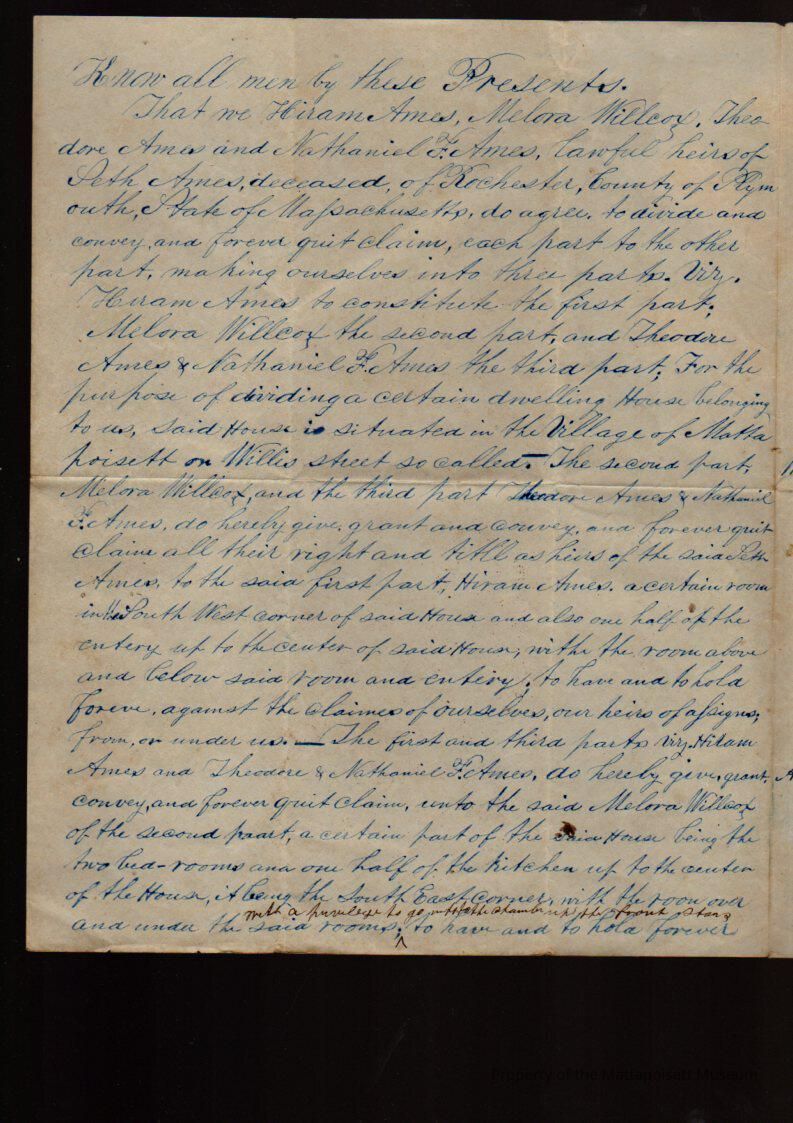 Know all men by these Presents.
That we Hiram Ames, Melora Willcox, Theo-
dore Ames and Nathaniel F. Ames, lawful heirs of
Seth Ames, deceased, of Rochester, County of Plym
outh, State of Massachusetts, do agree, to divide and
convey, and forever quit claim, each part to the other
part, making ourselves into three parts. Viz.
Hiram Ames to constitute the first part;
Melora Willcox the second part, and Theodore
Ames & Nathaniel F. Ames the third part; For the
purpose of dividing a certain dwelling House belonging
to us, said House is situated in the Village of Matta
poisett on Willis street so called. — The second part,
Melora Willcox, and the third part Theodore Ames & Nathaniel
F. Ames, do hereby give, grant and convey, and forever quit
claim all their right and titll as heirs of the said Seth
Ames, to the said first part, Hiram Ames. a certain room
in the South West corner of said House and also one half of the
entery up to the center of said House, withe the room above
and below said room and entery, to have and to hold
foreve, against the claimes of ourselves, our heirs of assigns;
from, or under us. — The first and third parts viz. Hiram
Ames and Theodore & Nathaniel F. Ames, do hereby give, grant,
convey, and forever quit claim, unto the said Melora Willcox
of the second paart, a certain part of the said House being the
two bed-rooms and one half of the Kitchen up to the center
of the House, it being the South East corner, with the room over
with a privilege to go into the chamber up the front stars
and under the said rooms, ^ to have and to hold forever
Property of the Mattapoisett Museum